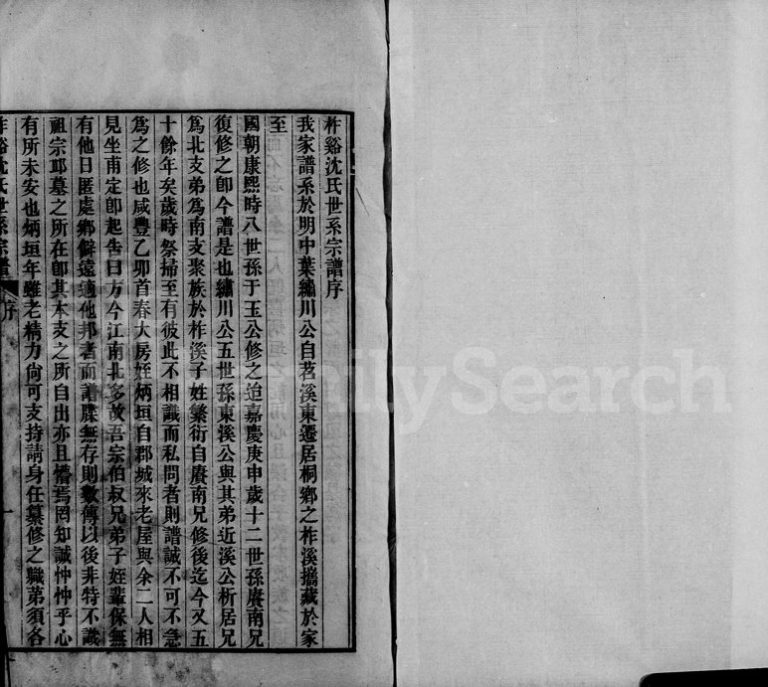 柞谿沈氏世系宗譜序
我家譜系於明中葉繡川公自苕溪東遷居桐鄉之柞溪攜藏於家
至
國朝康熙時八世孫于玉公修之迨嘉慶庚申歲十二世孫賡南兄
復修之卽今譜是也繡川公五世孫東溪公與其弟近溪公析居兄
爲北支弟爲南支聚族於柞溪子姓繁衍自賡南兄修後迄今又五
十餘年矣歲時祭掃至有彼此不相識而私問者則譜誠不可不急
爲之修也咸豐乙卯首春大房姪炳垣自郡城來老屋與余二人相
見坐甫定卽起告曰方今江南北多故吾宗伯叔兄弟子姪輩保無
有他日匿處鄉僻遠適他邦者而譜牒無存則數傳以後非特不識
祖宗邱墓之所在卽其本支之所自出亦且懵焉罔知誠忡忡乎心
有所未安也炳垣年雖老精力尙可支持請身任纂修之職弟須各
柞谿沈氏世系宗譜
序
一
FamilySearch